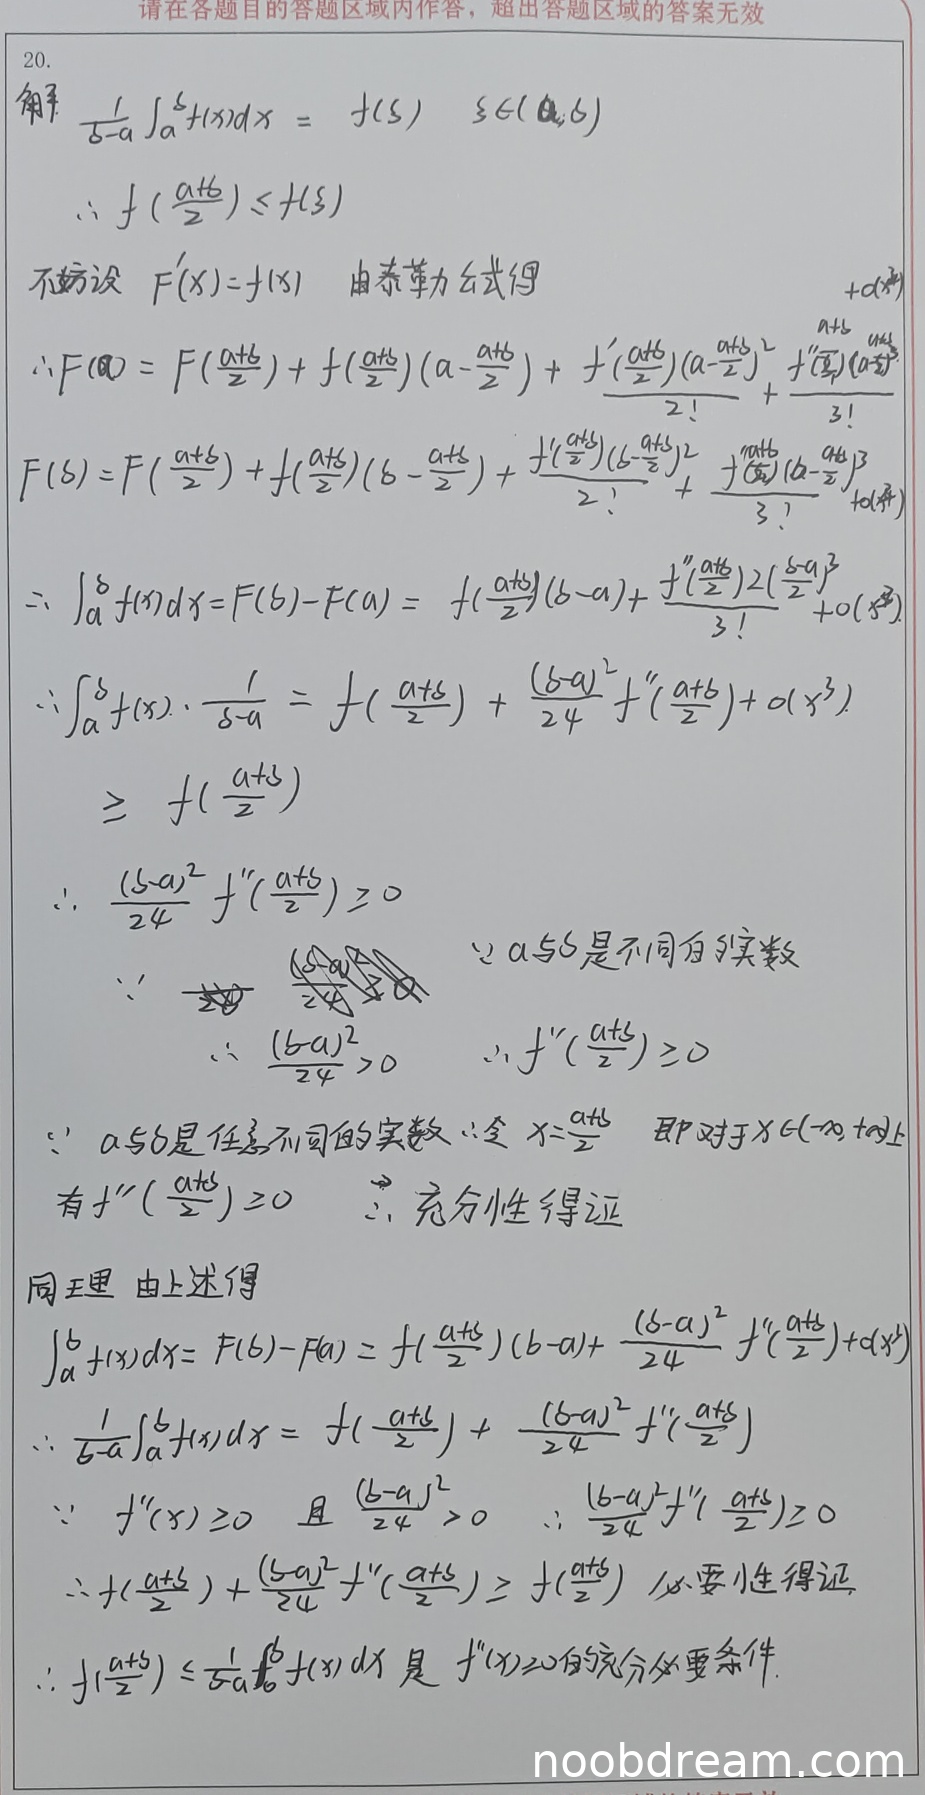 请在各题目的答题区域内作答，超出答题区域的答案无效
20.
解 $\frac{1}{b-a}\int_a^b f(x)dx = f(ξ)$ $ξ∈(a,b)$
∴ $f(\frac{a+b}{2}) ≤ f(ξ)$
不妨设 $F'(x)=f(x)$ 由泰勒公式得
∴ $F(a) = F(\frac{a+b}{2}) + f(\frac{a+b}{2})(a-\frac{a+b}{2}) + \frac{f'(\frac{a+b}{2})(a-\frac{a+b}{2})^2}{2!} + \frac{f''(\frac{a+b}{2})(a-\frac{a+b}{2})^3}{3!}$
$F(b) = F(\frac{a+b}{2}) + f(\frac{a+b}{2})(b-\frac{a+b}{2}) + \frac{f'(\frac{a+b}{2})(b-\frac{a+b}{2})^2}{2!} + \frac{f''(\frac{a+b}{2})(b-\frac{a+b}{2})^3}{3!}$
∴ $\int_a^b f(x)dx = F(b)-F(a) = f(\frac{a+b}{2})(b-a) + \frac{f''(\frac{a+b}{2})2(\frac{b-a}{2})^3}{3!}$
∴ $\int_a^b f(x)·\frac{1}{b-a} = f(\frac{a+b}{2}) + \frac{(b-a)^2}{24}f''(\frac{a+b}{2}) + o(x^3).$
$≥ f(\frac{a+b}{2})$
∴ $\frac{(b-a)^2}{24}f''(\frac{a+b}{2}) ≥ 0$
∵ ∵ a与b是不同的实数
∴ $\frac{(b-a)^2}{24} > 0$ ∴ $f''(\frac{a+b}{2}) ≥ 0$
∵ a与b是任意不同的实数 ∴令 $x=\frac{a+b}{2}$ 即对于 $x∈(-∞,+∞)$上
有 $f''(\frac{a+b}{2}) ≥ 0$ ∴ 充分性得证
同理 由上述得
$\int_a^b f(x)dx = F(b)-F(a) = f(\frac{a+b}{2})(b-a) + \frac{(b-a)^2}{24}f''(\frac{a+b}{2}) + o(x^3)$
∴ $\frac{1}{b-a}\int_a^b f(x)dx = f(\frac{a+b}{2}) + \frac{(b-a)^2}{24}f''(\frac{a+b}{2})$
∵ $f''(x) ≥ 0$ 且 $\frac{(b-a)^2}{24} > 0$ ∴ $\frac{(b-a)^2}{24}f''(\frac{a+b}{2}) ≥ 0$
∴ $f(\frac{a+b}{2}) + \frac{(b-a)^2}{24}f''(\frac{a+b}{2}) ≥ f(\frac{a+b}{2})$ 必要性得证
∴ $f(\frac{a+b}{2}) ≤ \frac{1}{b-a}\int f(x)dx$ 是 $f''(x)≥0$的充分必要条件.
noobdream.com